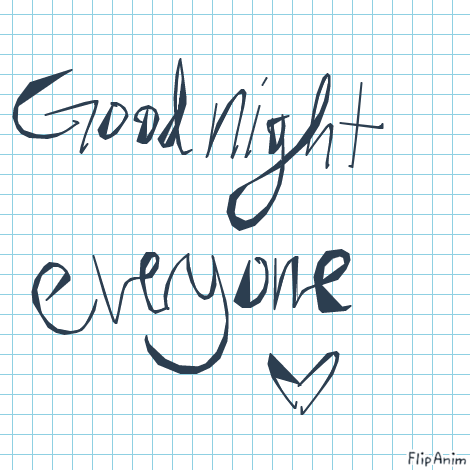 Good night
everyone
FlipAnim